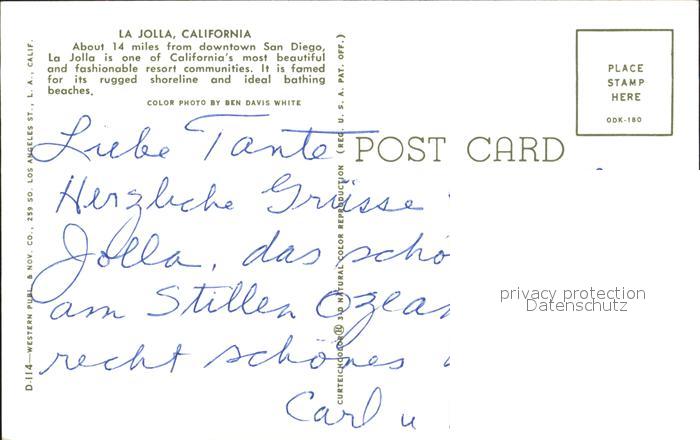 LA JOLLA, CALIFORNIA
About 14 miles from downtown San Diego,
La Jolla is one of California's most beautiful
and fashionable resort communities. It is famed
for its rugged shoreline and ideal bathing
beaches.
COLOR PHOTO BY BEN DAVIS WHITE
D-114—WESTERN PUBL. & NOV. CO., 259 SO. LOS ANGELES ST., L. A., CALIF.
CURTEICHCOLOR® 3-D NATURAL COLOR REPRODUCTION (REG. U. S. A. PAT. OFF.)
POST CARD
PLACE
STAMP
HERE
ODK-180
Liebe Tante
Herzliche Grüsse
Jolla, das schö
am Stillen Ozean
recht schönes
Carl u
privacy protection
Datenschutz